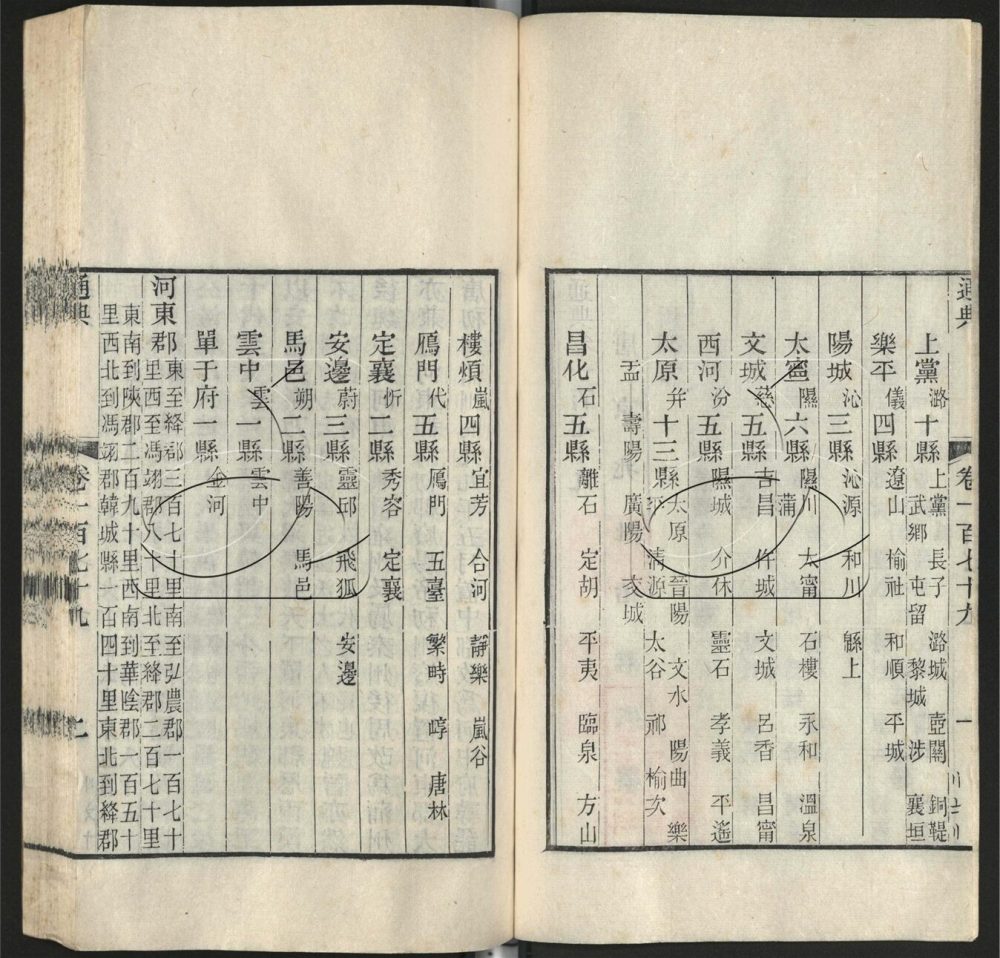 通典 卷一百七十九 一
上黨潞十縣 上黨 長子 潞城 壺關 銅鞮
武鄉 屯留 黎城 涉 襄垣
樂平儀四縣 遼山 榆社 和順 平城
陽城沁三縣 沁源 和川 緜上
太甯隰六縣 隰川 蒲 太甯 石樓 永和 溫泉
文城慈五縣 吉昌 仵城 文城 呂香 昌甯
西河汾五縣 隰城 介休 靈石 孝義 平遙
太原并十三縣 太原 晉陽 文水 陽曲 樂
平 清源 太谷 祁 榆次
盂 壽陽 廣陽 交城
昌化石五縣 離石 定胡 平夷 臨泉 方山
樓煩嵐四縣 宜芳 合河 靜樂 嵐谷
鴈門代五縣 鴈門 五臺 繁畤 崞 唐林
定襄忻二縣 秀容 定襄
安邊蔚三縣 靈邱 飛狐 安邊
馬邑朔二縣 善陽 馬邑
雲中雲一縣 雲中
單于府一縣 金河
河東郡 東至絳郡三百七十里南至弘農郡一百七十
里西至馮翊郡八十里北至絳郡二百七十里
東南到陝郡二百九十里西南到華陰郡六百五十
里西北到馮翊郡韓城縣一百四十里東北到絳郡
通典 卷一百七十九